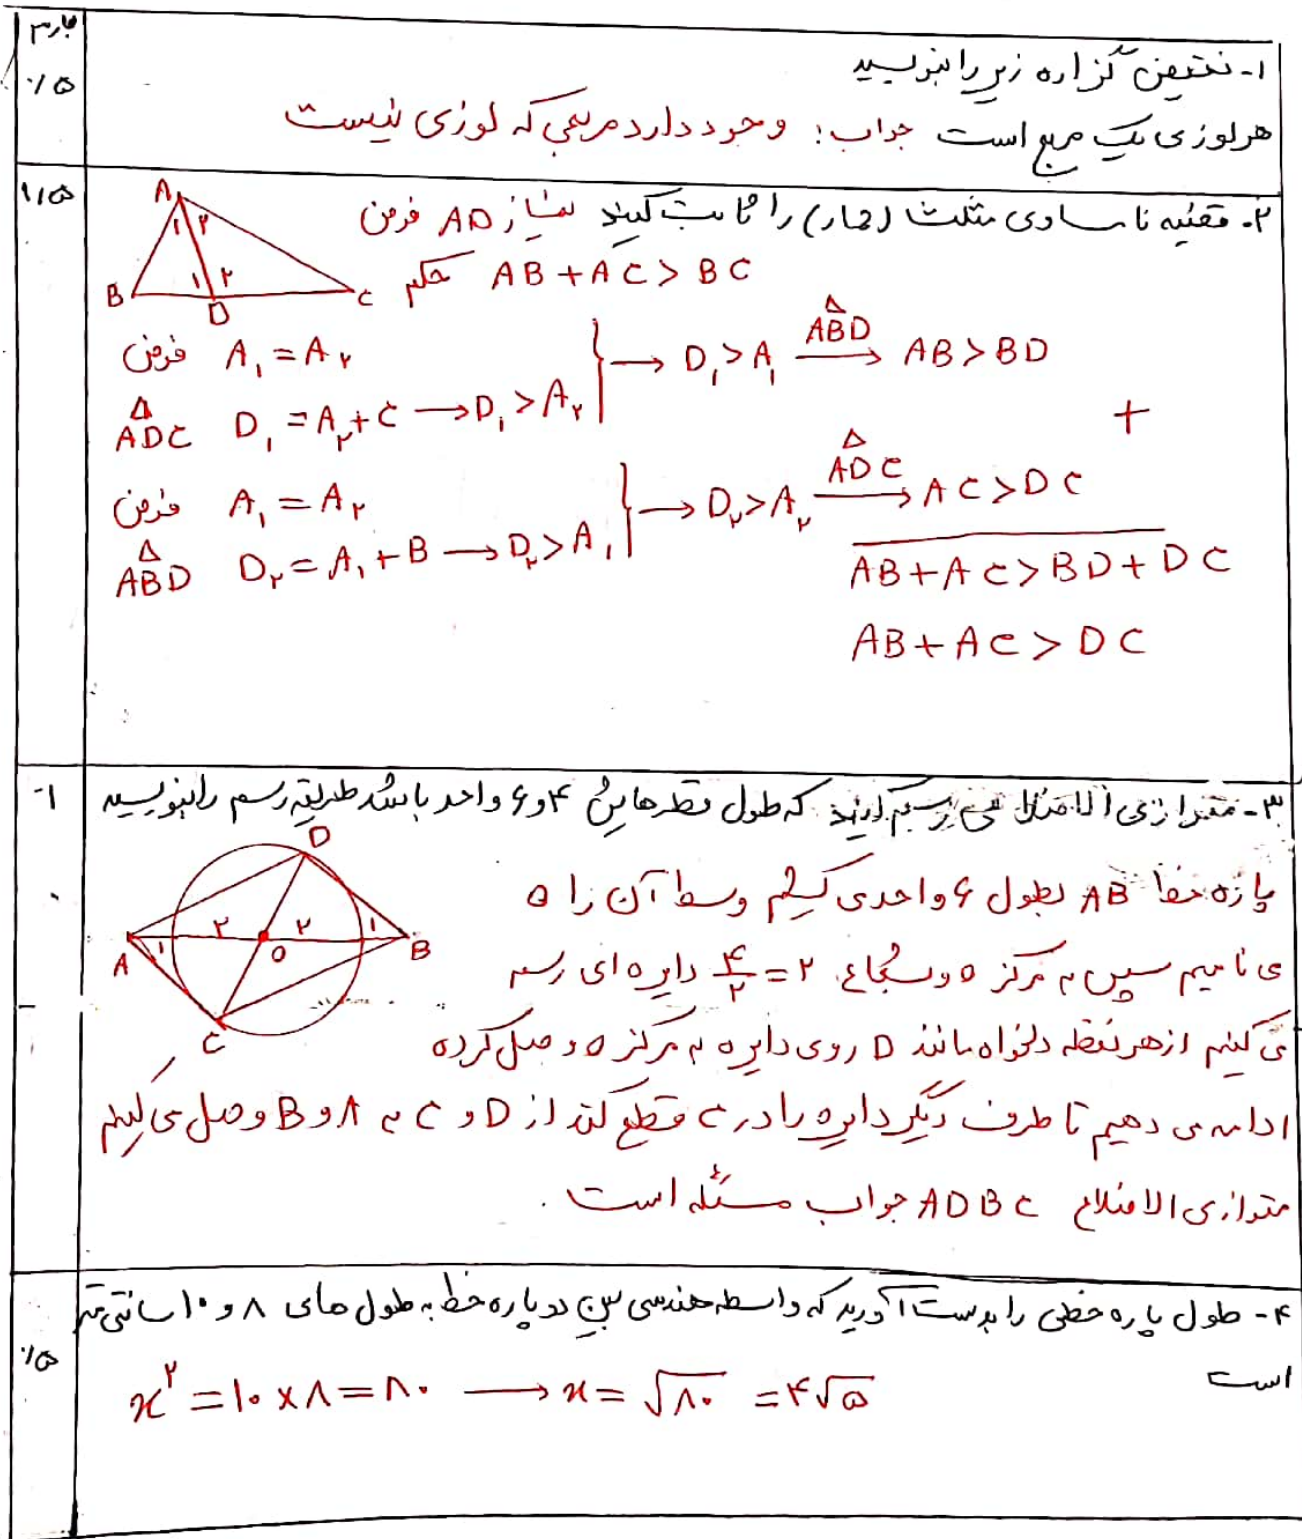 بارم
۱- نقیض گزاره زیر را بنویسید
۰/۵
هر لوزی یک مربع است جواب: وجود دارد مربعی که لوزی نیست
۱/۵
۲- قضیه ناساوی مثلث (حمار) را ثابت کنید نیمساز AD فرض
حکم AB + AC > BC
A
۱ ۲
۱ ۲
B D C
فرض A₁ = A₂
D₁ > A₁ ABD △ → AB > BD
△ ADC D₁ = A₂ + C → D₁ > A₂
+
فرض A₁ = A₂
D₂ > A₂ ADC △ → AC > DC
△ ABD D₂ = A₁ + B → D₂ > A₁
AB + AC > BD + DC
AB + AC > DC
۱
۳- متوازی الاضلاعی رسم کنید که طول قطرهایش ۴ و ۶ واحد باشد طریقه رسم را بنویسید
D
۳ ۳ ۱
A ۱ O B
C
پاره خط AB بطول ۶ واحد می کشیم وسط آن را O
می نامیم سپس به مرکز O و شعاع ۴/۲ = ۲ دایره ای رسم
می کنیم از هر نقطه دلخواه مانند D روی دایره به مرکز O وصل کرده
ادامه می دهیم تا طرف دیگر دایره را در C قطع کند از D و C به A و B وصل می کنیم
متوازی الاضلاع ADBC جواب مسئله است.
۴- طول پاره خطی را بدست آورید که واسطه هندسی بین دو پاره خط به طول های ۸ و ۱۰ سانتی متر
۰/۵
است
x² = ۱۰ × ۸ = ۸۰ → x = √۸۰ = ۴√۵